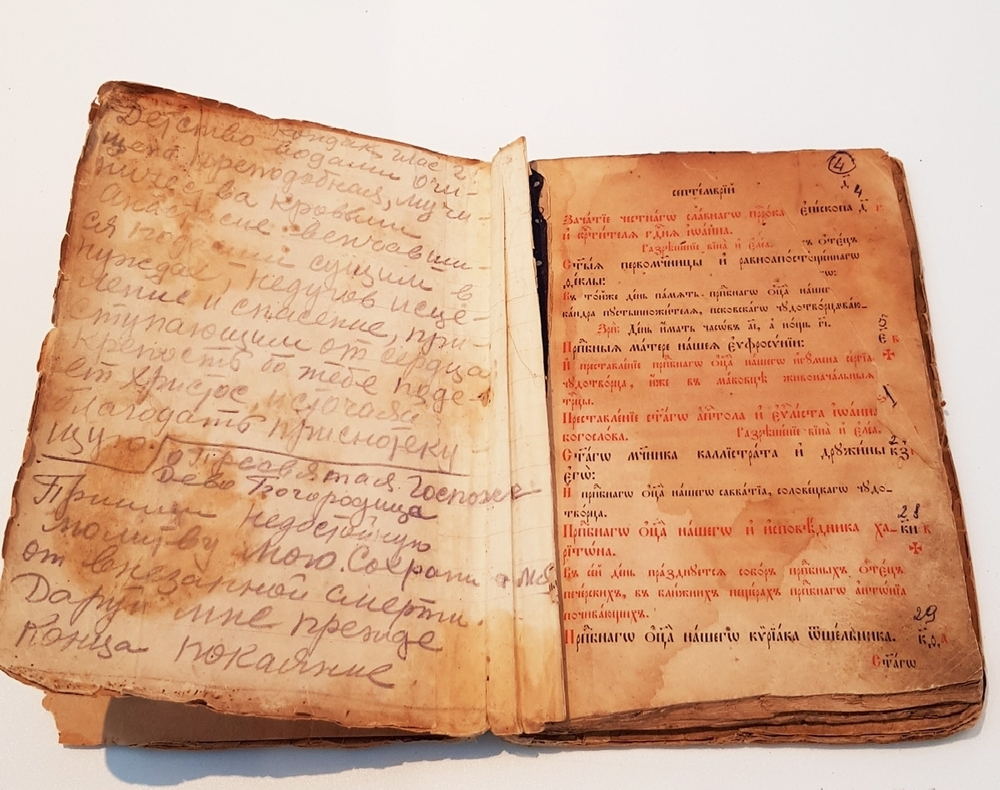 Кондак, глас 2.
Детство водами очи-
щена преподобная, мучи-
ничества кровьми
Анастасие венчавши-
ся подаеши сущим в
нуждах, недугов исце-
ление и спасение, при-
ступающим от сердца
крепость бо тебе пода-
ет Христос источаяй
благодать приснотеку-
щую.
о Пресвятая Госпоже
Дево Богородица
Приими недостойную
молитву мою. Сохрани мя
от внезапной смерти.
Даруй мне прежде
конца покаяние.
4
септемврїй
4
Зачатїе честнагѡ славнагѡ пррока
и крⷭ҇тителя гдⷭ҇ня їѡанна.
Разрѣшенїе вїна и елеа.
епископа
ъ отецъ
Стыѧ первомꙋченицы и равноапостольныѧ
ѳеклы:
Въ тойже день памѧть прпⷣбнагѡ оц҃а нашегѡ
кандра пꙋстынножителѧ, псковскагѡ чꙋдотворца
Зри: день имать часѡвъ аі, а нощь гі.
Прпⷣбныѧ матере нашеѧ еѵфросѵнїи:
И преставленїе прпⷣбнагѡ оц҃а нашегѡ игꙋмена сергїа
чꙋдотворца, иже въ маковцѣ живоначальныѧ
трⷪ҇цы.
Преставленїе ст҃агѡ апⷭ҇тола и еѵⷢ҇лїста їѡанна
богослова.
Разрѣшенїе вїна и елеа.
Ст҃агѡ мч҃ника каллїстрата и дрꙋжины
егѡ:
И прпⷣбнагѡ оц҃а нашегѡ савватїа, соловецкагѡ чꙋдо-
творца.
28
Прпⷣбнагѡ оц҃а нашегѡ и исповѣдника ха- ки
рїтѡна.
Въ сей день празднꙋетсѧ соборъ прпⷣбныхъ отецъ
печерскихъ, въ ближнихъ пещерахъ прпⷣбнагѡ антѡнїа
почивающихъ.
29
Прпⷣбнагѡ оц҃а нашегѡ кѵрїака ѿшельника. кѳ
Ст҃агѡ